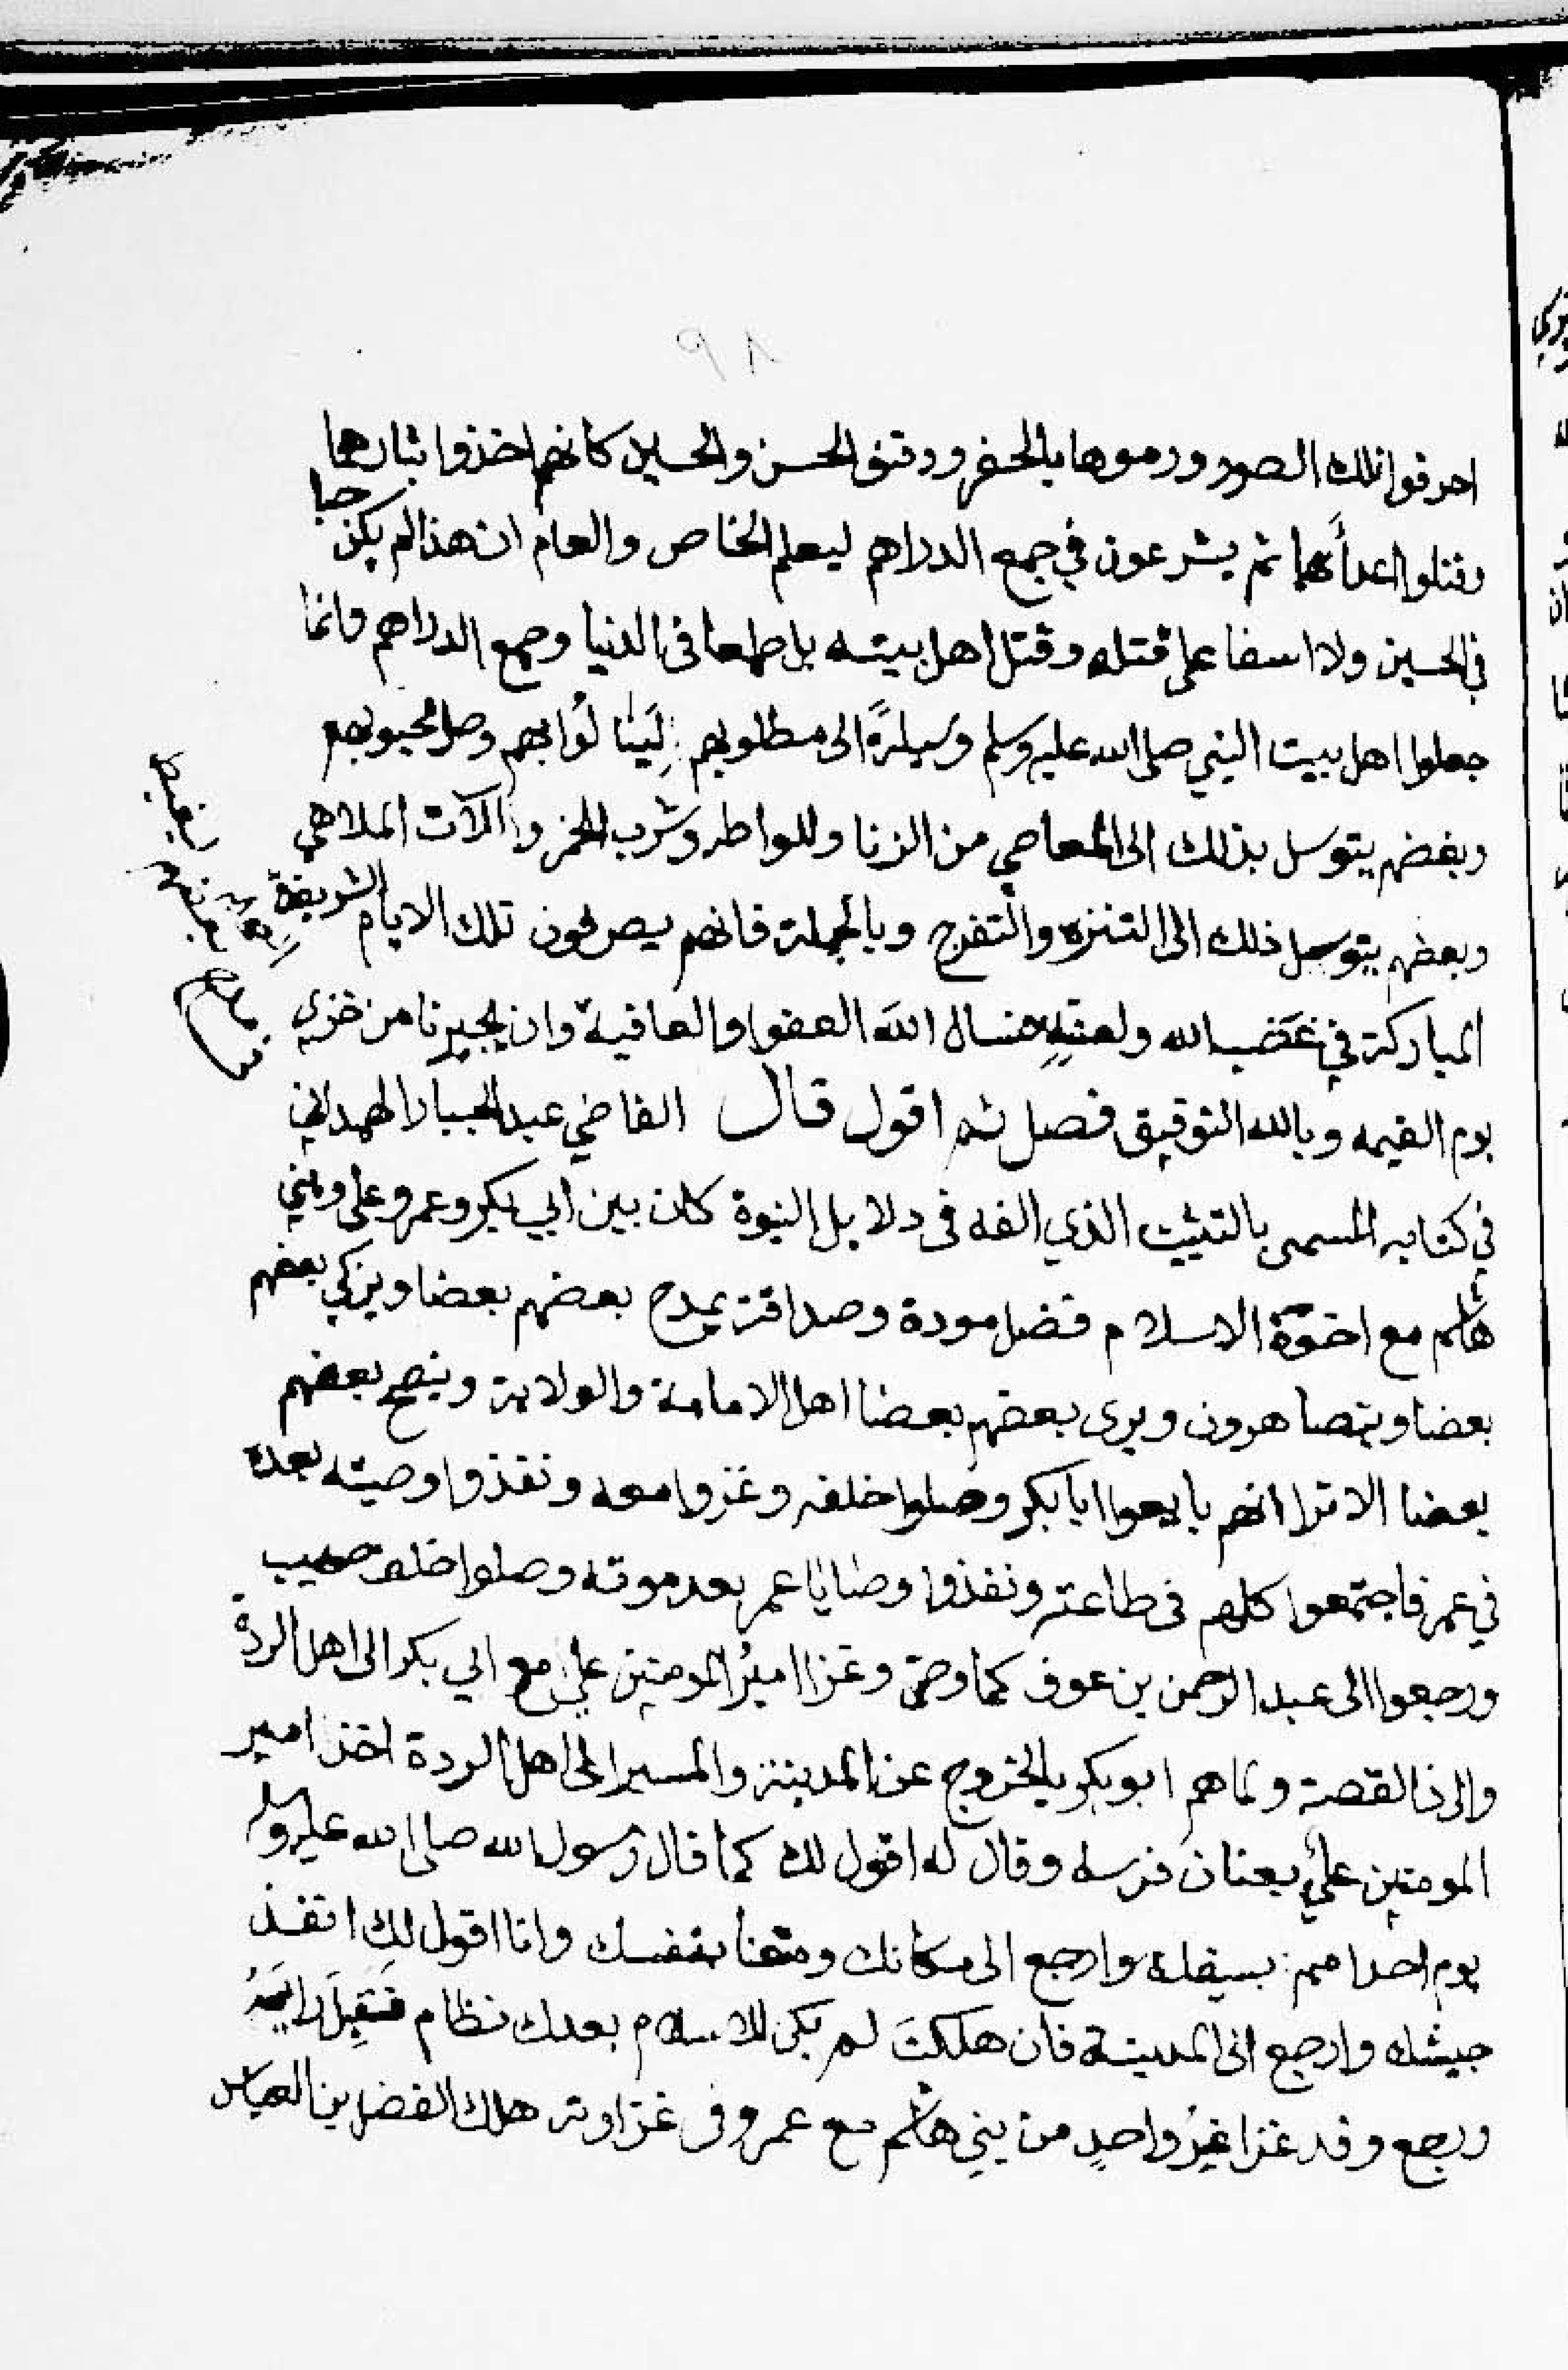 ٨٩
احرقوا تلك الصور ورموها بالحفر ودقنق الحسن والحسين كانهم اخذوا بثارهما
وقتلوا اعدأهما ثم يشرعون في جمع الدراهم ليعلم الخاص والعام ان هذا لم يكن حبا
في الحسين ولا اسفا على قتله وقتل اهل بيته بل طمعا فى الدنيا وجمع الدراهم وانما
جعلوا اهل بيت النبي صلى الله عليه وسلم وسيلةً الى مطلوبهم وصل محبوبهم
وبعضهم يتوسل بذلك الى المعاصي من الزنا وللواطه وشرب الخمر والآت الملاهي
وبعضهم يتوسل ذلك الى التنزه والتفرج وبالجملة فانهم يصرفون تلك الايام الشريفة
المباركة في غضب الله ولعنته فنسال الله العفو والعافية وان يجيرنا من خزي
يوم القيمه وبالله التوفيق فصل ثم اقول قال القاضي عبد الجبار الهمداني
في كتابه المسمى بالتثبيت الذي الفه فى دلايل النبوة كان بين ابي بكر وعمر وعلى وبني
هاشم مع اخوة الاسلام فضل مودة وصداقة يمدح بعضهم بعضا ويزكي بعضهم
بعضا ويتصاهرون ويرى بعضهم بعضا اهل الامامة والولاية وينصح بعضهم
بعضا الا ترا انهم بايعوا ابا بكر وصلوا خلفه وغزوا معه ونفذوا وصيته بعده
في عمر فاجتمعوا كلهم فى طاعته ونفذوا وصايا عمر بعد موته وصلوا خلف صهيب
ورجعوا الى عبد الرحمن بن عوف كما وصى وغزا امير المومنين علي مع ابي بكر الى اهل الردة
والى ذا القصة ولما هم ابو بكر بالخروج عن المدينة والمسير الى اهل الردة اخذ امير
المومنين علي بعنان فرسه وقال له اقول لك كما قال رسول الله صلى الله عليه وسلم
يوم احد بسيفك وارجع الى مكانك ومتعنا بنفسك وانا اقول لك انفذ
جيشك وارجع الى المدينة فان هلكتَ لم يكن للاسلام بعدك نظام فقبِلَ رايَهُ
ورجع وقد غزا غيرُ واحدٍ من بني هاشم مع عمر وفى غزاوته هلك الفضل بن العباس